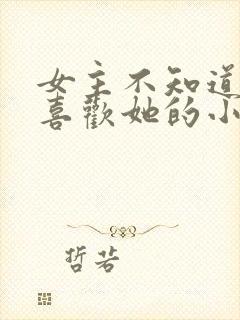 女主不知道
喜歡她的小
哲若